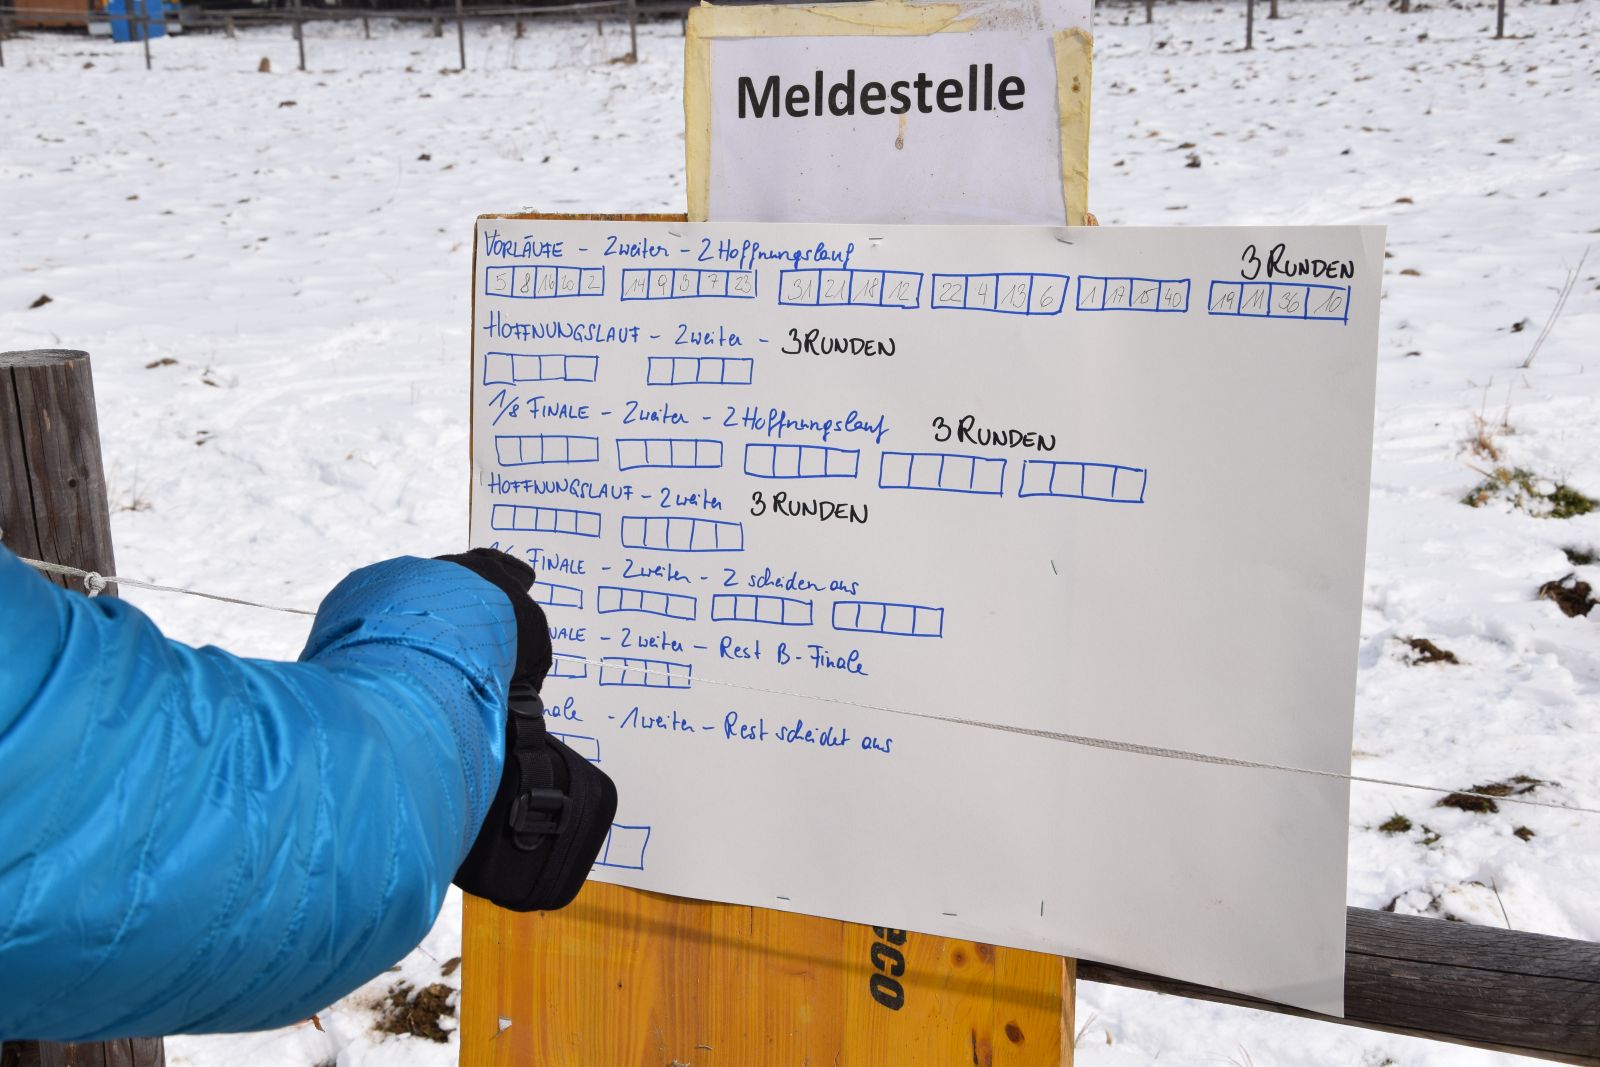 Meldestelle
VORLÄUFE - 2 weiter - 2 Hoffnungslauf 3 RUNDEN
5 8 16 20 2 14 9 3 7 23 31 21 18 12 22 4 13 6 1 17 15 40 19 11 36 10
HOFFNUNGSLAUF - 2 weiter - 3 RUNDEN
1/8 FINALE - 2 weiter - 2 Hoffnungslauf 3 RUNDEN
HOFFNUNGSLAUF - 2 weiter 3 RUNDEN
FINALE - 2 weiter - 2 scheiden aus
NALE - 2 weiter - Rest B-Finale
nale - 1 weiter - Rest scheidet aus
eco